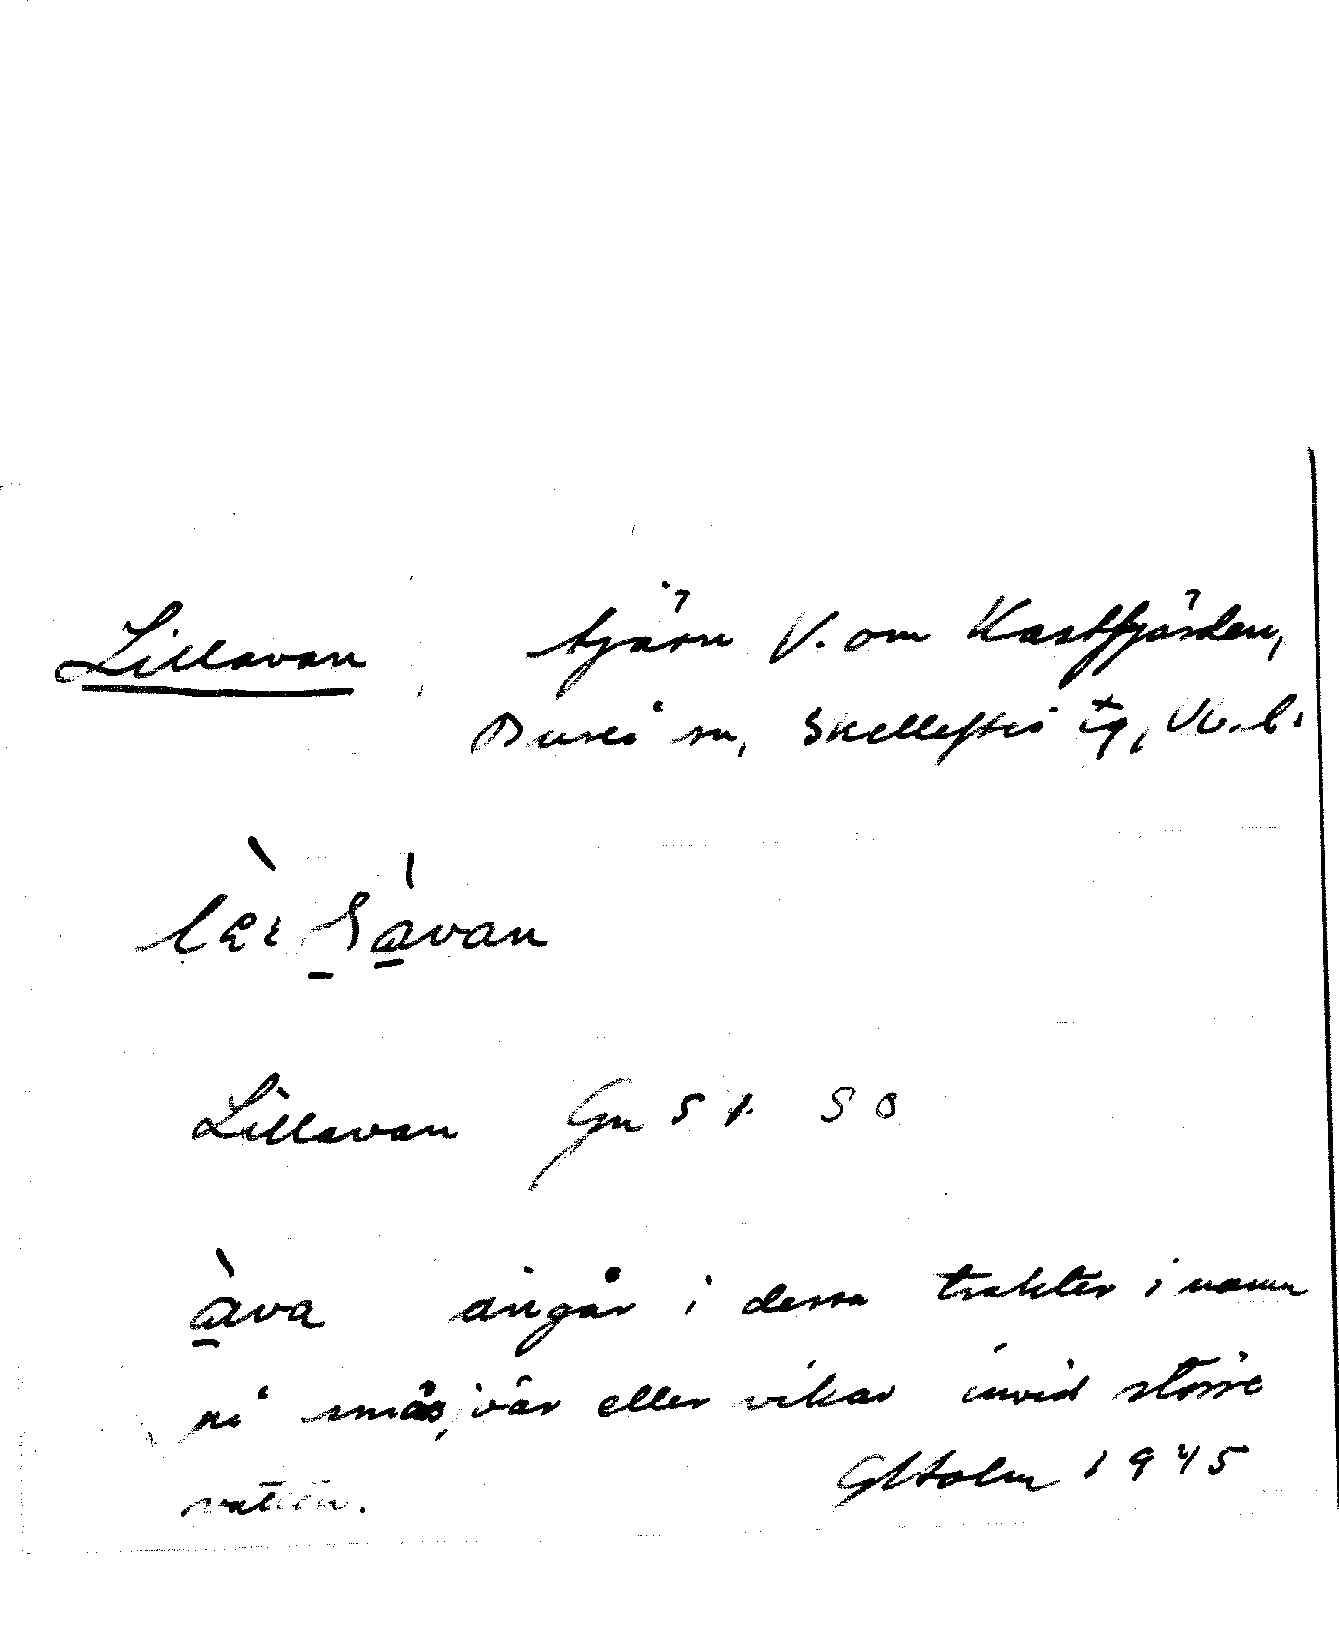 Lillavan tjärn V. om Kastfjärden,
Bureå sn, Skellefteå tg, Vb. l.
àván
Lillavan Gn 5 x SO
àva ingår i dessa trakter i namn
på småsjöar eller vikar invid större
vatten. G Holm 1945